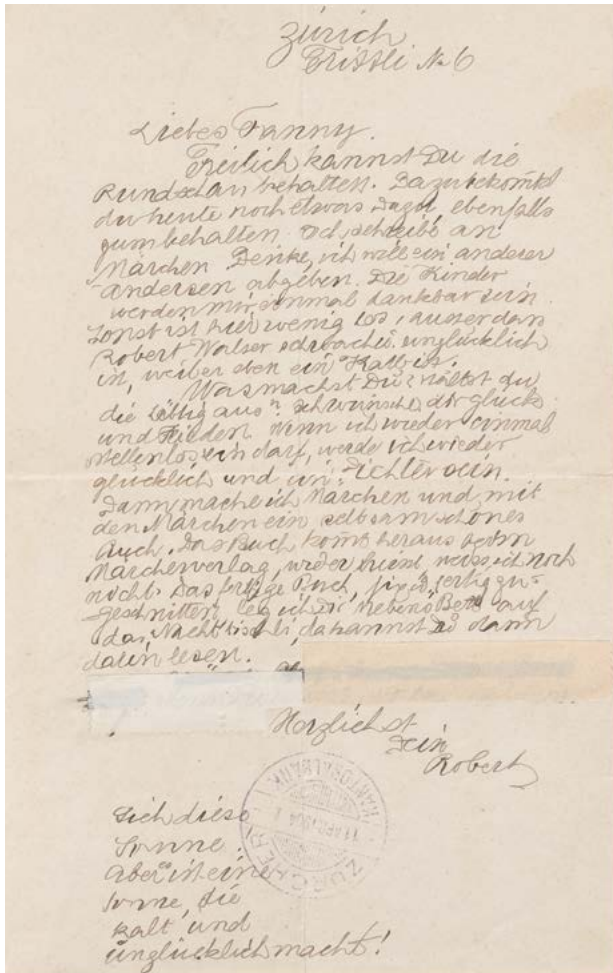 Zürich
Trittli No 6
Liebes Fanny.
Freilich kannst Du die
Rundschau behalten. Dazu bekomst
du heute noch etwas dazu, ebenfalls
zum behalten. Ich schreibe an
Märchen. Denke, ich will ein anderer
Andersen abgeben. Die Kinder
werden mir einmal dankbar sein.
Sonst ist hier wenig los, ausser dass
Robert Walser schwach u. unglücklich
ist, weil er eben ein Kalb ist.
Was machst Du? Hältst du
die aus? Ich wünsche dir glück
und Frieden. Wenn ich wieder einmal
stellenlos sein darf, werde ich wieder
glücklich und ein Dichter sein.
Dann mache ich Märchen und mit
den Märchen ein seltsam schönes
Buch. Das Buch komt heraus beim
Märchenverlag, wie der heisst weiss ich noch
nicht. Das fertige Buch, fix u. fertig zu-
geschnitten leg ich Dir nebens Bett auf
das Nachttischli, da kannst Du dann
darin lesen.
Herzlichst
Dein
Robert
ZÜRCHER KANTONALBANK
Sieh diese
Sonne.
Aber es ist eine
Sonne, die
kalt und
unglücklich macht!